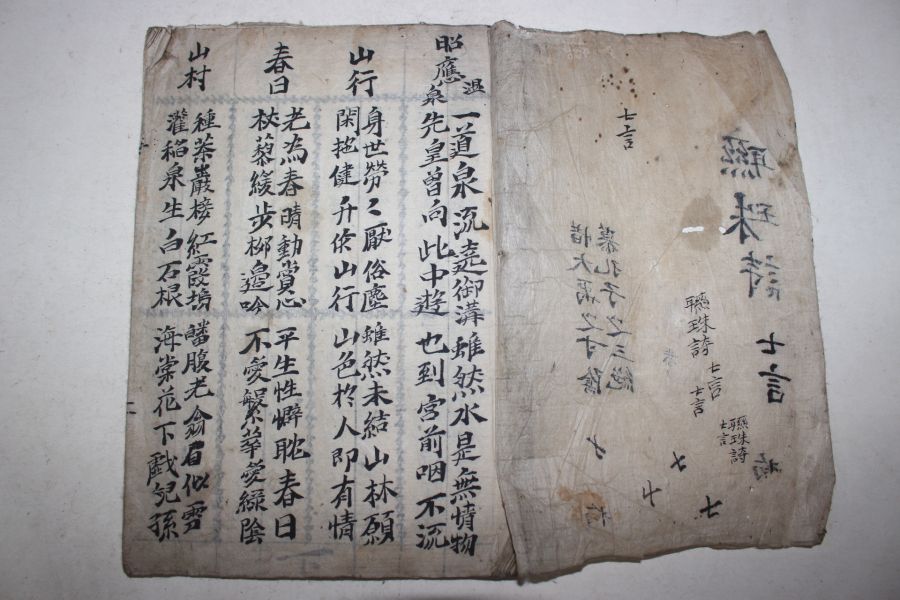 聯珠詩
七言
聯珠詩 七言
七言
聯珠詩
七言
七言
慕孔子之三絶
惜大禹之寸陰
昭應温泉
一道泉流遶御溝 雖然水是無情物
先皇曾向此中遊 也到宮前咽不流
山行
身世勞〻厭俗塵 雖然未結山林願
閑拖健升佐山行 山色於人即有情
春日
老為春晴動賞心 平生性懶耽春日
杖藜緩步柳邊吟 不愛繁華愛綠陰
山村
種茶巖棲紅霞塢 皤腹老翁眉似雪
灌稻泉生白石根 海棠花下戲兒孫